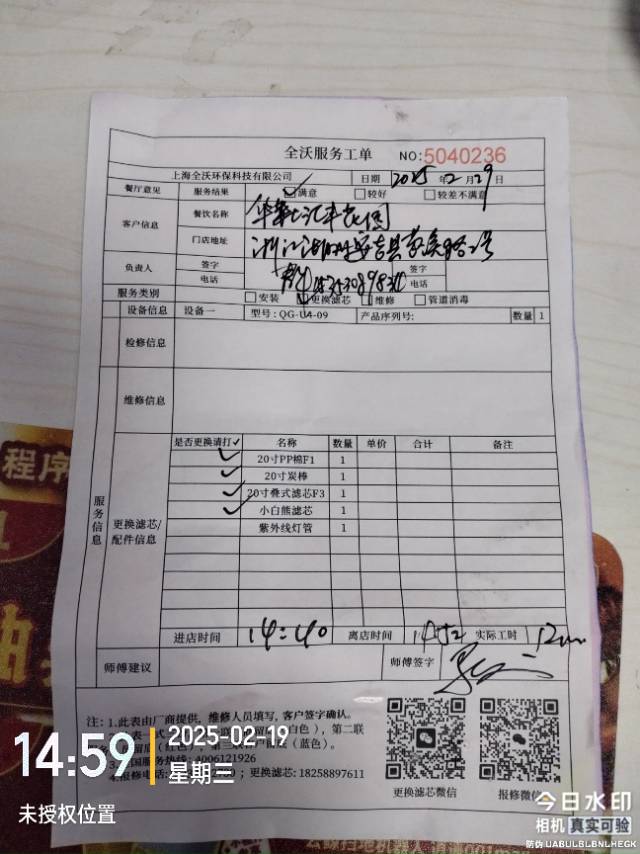 全沃服务工单 NO:5040236
上海全沃环保科技有限公司 日期 2025年2月29日
餐厅意见 服务结果 ✓满意 □较好 □较差不满意
客户信息 餐饮名称
门店地址 浙江湖州安吉县
负责人 签字 签字
电话 电话
服务类别 □安装 更换滤芯 □维修 □管道消毒
设备信息 设备一 型号:QG-U4-09 产品序列号: 数量 1
检修信息
维修信息
服务信息
更换滤芯/配件信息
是否更换请打✓ 名称 数量 单价 合计 备注
✓ 20寸PP棉F1 1
✓ 20寸炭棒 1
✓ 20寸叠式滤芯F3 1
✓ 小白熊滤芯 1
紫外线灯管 1
进店时间 14:40 离店时间 1452 实际工时
师傅建议 师傅签字
注: 1.此表由厂商提供, 维修人员填写, 客户签字确认。
白色), 第二联
(蓝色)。
国服务热线: 4006121926
4.报修电话: ; 更换滤芯: 18258897611
更换滤芯微信 报修微信
14:59 2025-02-19
星期三
未授权位置
今日水印
相机 真实可验
防伪 UABULBLBNLHEGK
程序